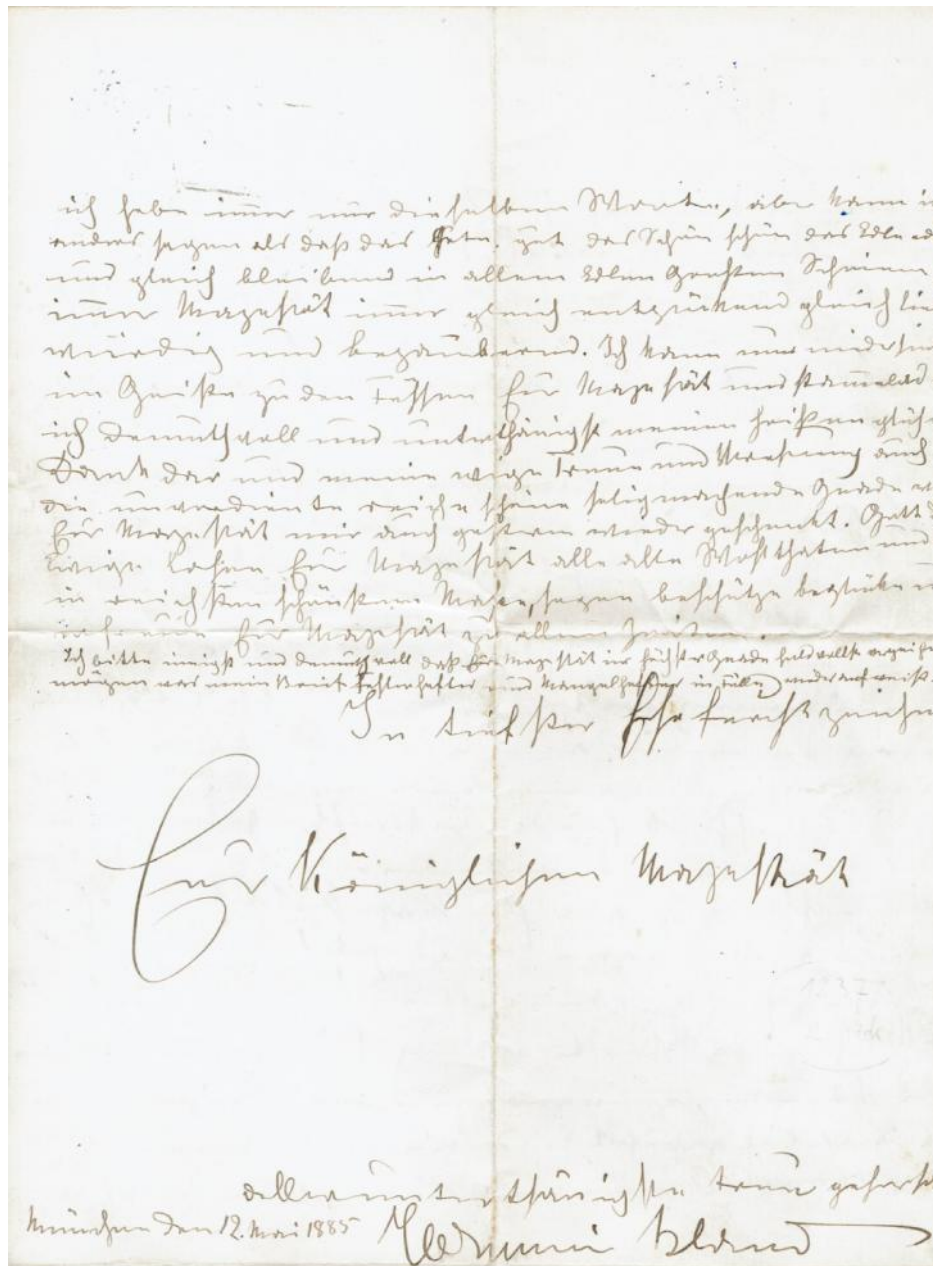 ich habe immer nur dieselben Worte, aber kann i
anders sagen als daß das Gute gut das Schöne schön das Edle ed
und gleich bleibend in allem Edlen Großen Schönen
immer Mayestät immer gleich entzückend gleich lie
würdig und bezaubernd. Ich kann nur niedersin
im Geiste zu den Füssen Eür Mayestät und stammelnd
ich demuthvoll und unterthänigst meinen heißen glüh
Dank dar und meine ewige Treue und Verehrung auch
die unverdiente reiche schöne seligmachende Gnade
Eür Mayestät mir auch gestern wieder geschenkt. Gott
Ewige lohne Eür Mayestät all alte Wohlthaten und
in reichsten schönsten Maße, segne beschütze beglücke
Eür Mayestät zu allen Zeiten.
Ich bitte innigst und demuthvoll daß Eür Mayestät in höchster Gnade huldvollst verzeihe
mögen was mein Brief Fehlerhaftes und Mangelhaftes in Fülle wieder aufweist.
In tiefster Ehrfurcht zeichn
Eür Königlichen Mayestät
allerunterthänigste treu gehors
München den 12. Mai 1885
Hermine Bland